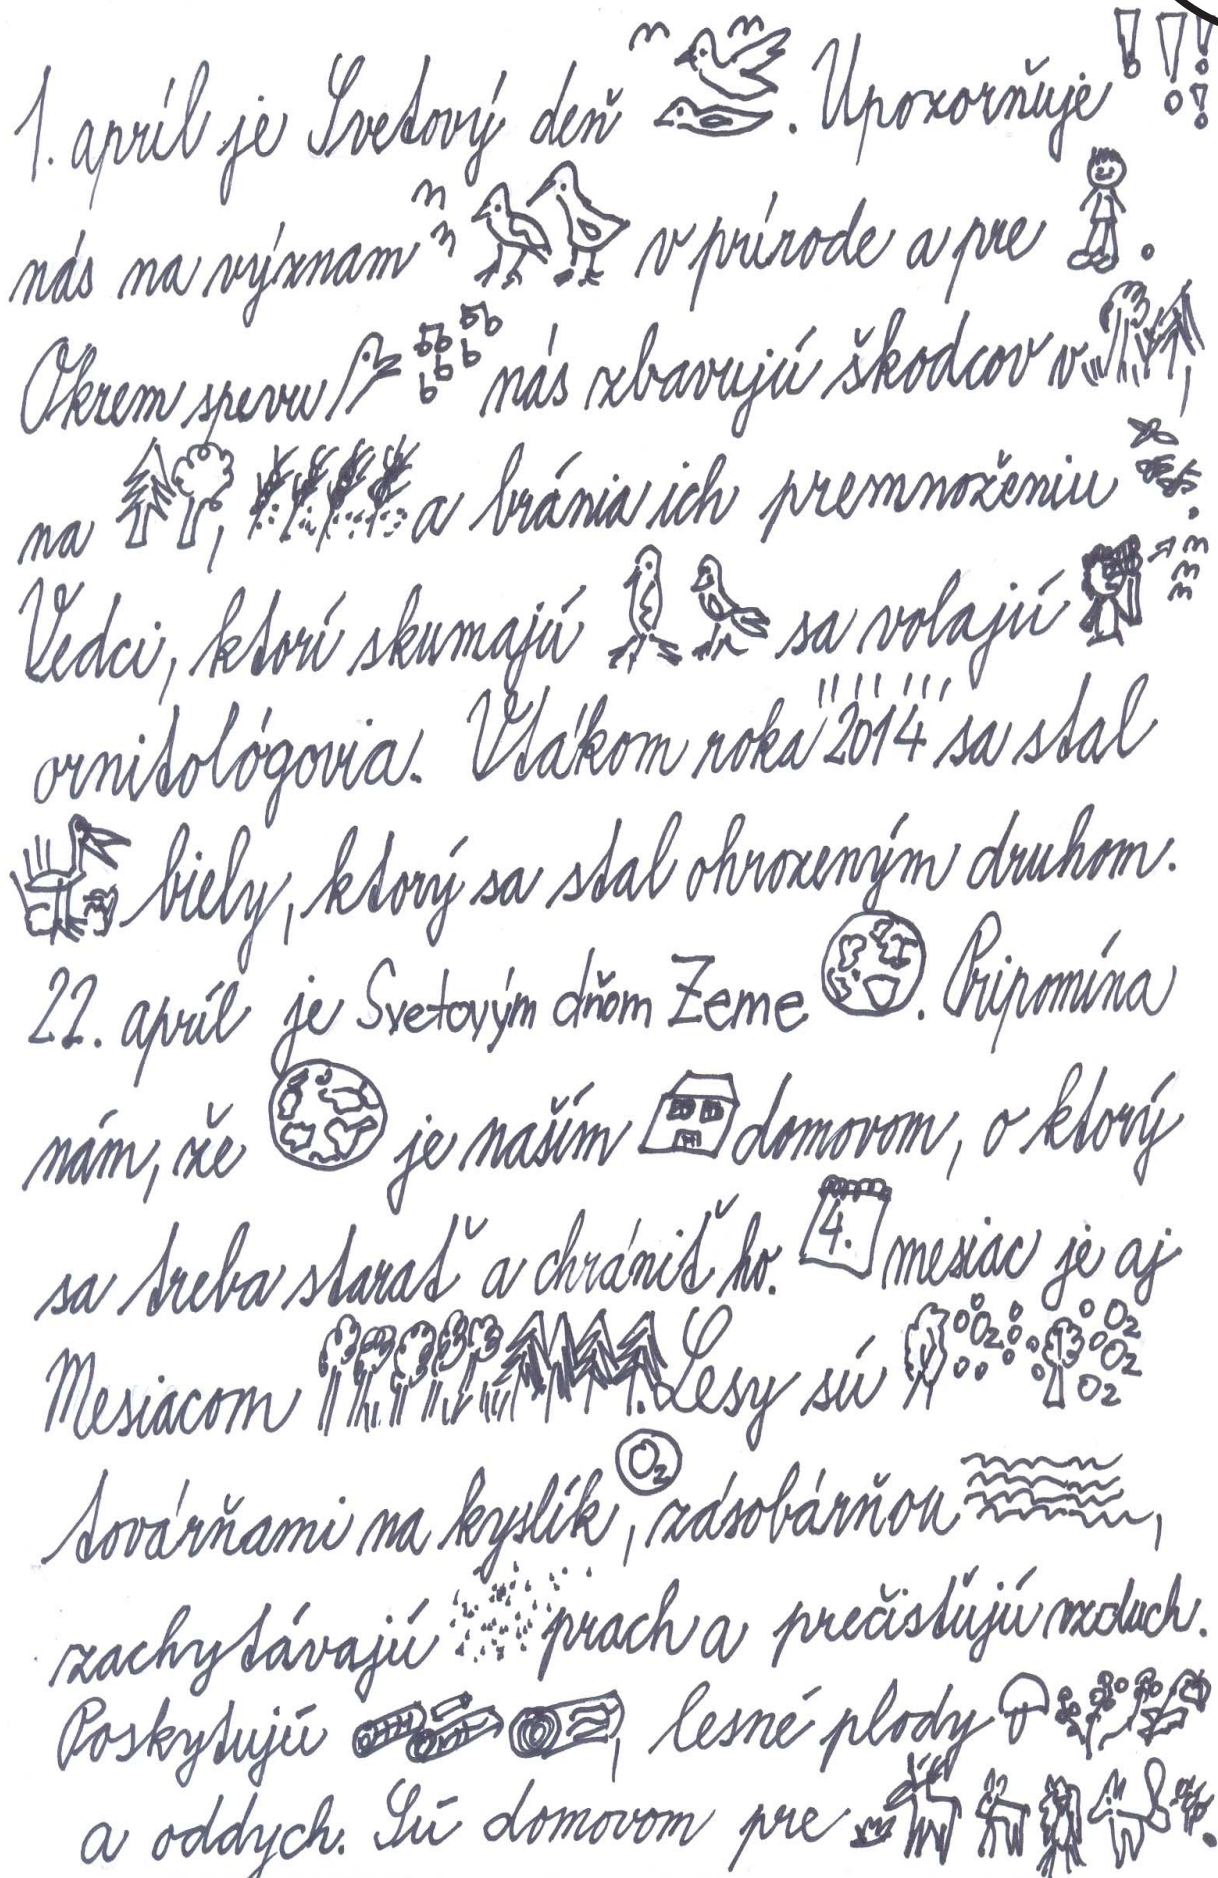 1. apríl je Svetový deň . Upozorňuje !!!!
nás na význam v prírode a pre .
Okrem spevu nás zbavujú škodcov v ,
na , a bránia ich premnoženiu .
Vedci, ktorí skumajú sa volajú
ornitológovia. Vtákom roka 2014 sa stal
biely, ktorý sa stal ohrozeným druhom.
22. apríl je Svetovým dňom Zeme . Pripomína
nám, že je naším domovom, o ktorý
sa treba starať a chrániť ho. 4. mesiac je aj
Mesiacom . Lesy sú O2 O2 O2 O2
továrňami na kyslík O2, zásobárňou ,
zachytávajú prach a prečisťujú vzduch.
Poskytujú , lesné plody
a oddych. Sú domovom pre .